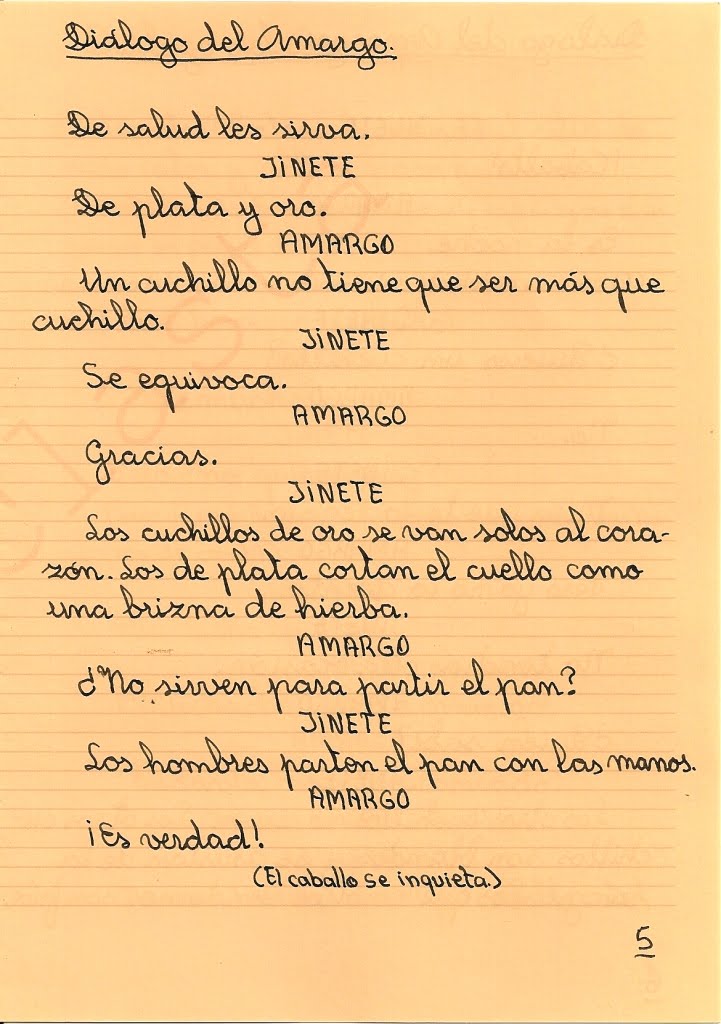 Diálogo del Amargo.
De salud les sirva.
JiNETE
De plata y oro.
AMARGO
Un cuchillo no tiene que ser más que
cuchillo.
JiNETE
Se equivoca.
AMARGO
Gracias.
JiNETE
Los cuchillos de oro se van solos al cora-
zón. Los de plata cortan el cuello como
una brizna de hierba.
AMARGO
¿No sirven para partir el pan?
JiNETE
Los hombres parten el pan con las manos.
AMARGO
¡Es verdad!
(El caballo se inquieta.)
5